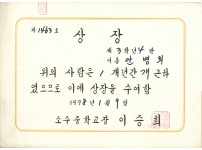 제1463호
상장
제3학년4반
이름 안병희
위의 사람은 1개년간 개근하
였으므로 이에 상장을 수여함
1978년 1월 9일
소수중학교장 이승희